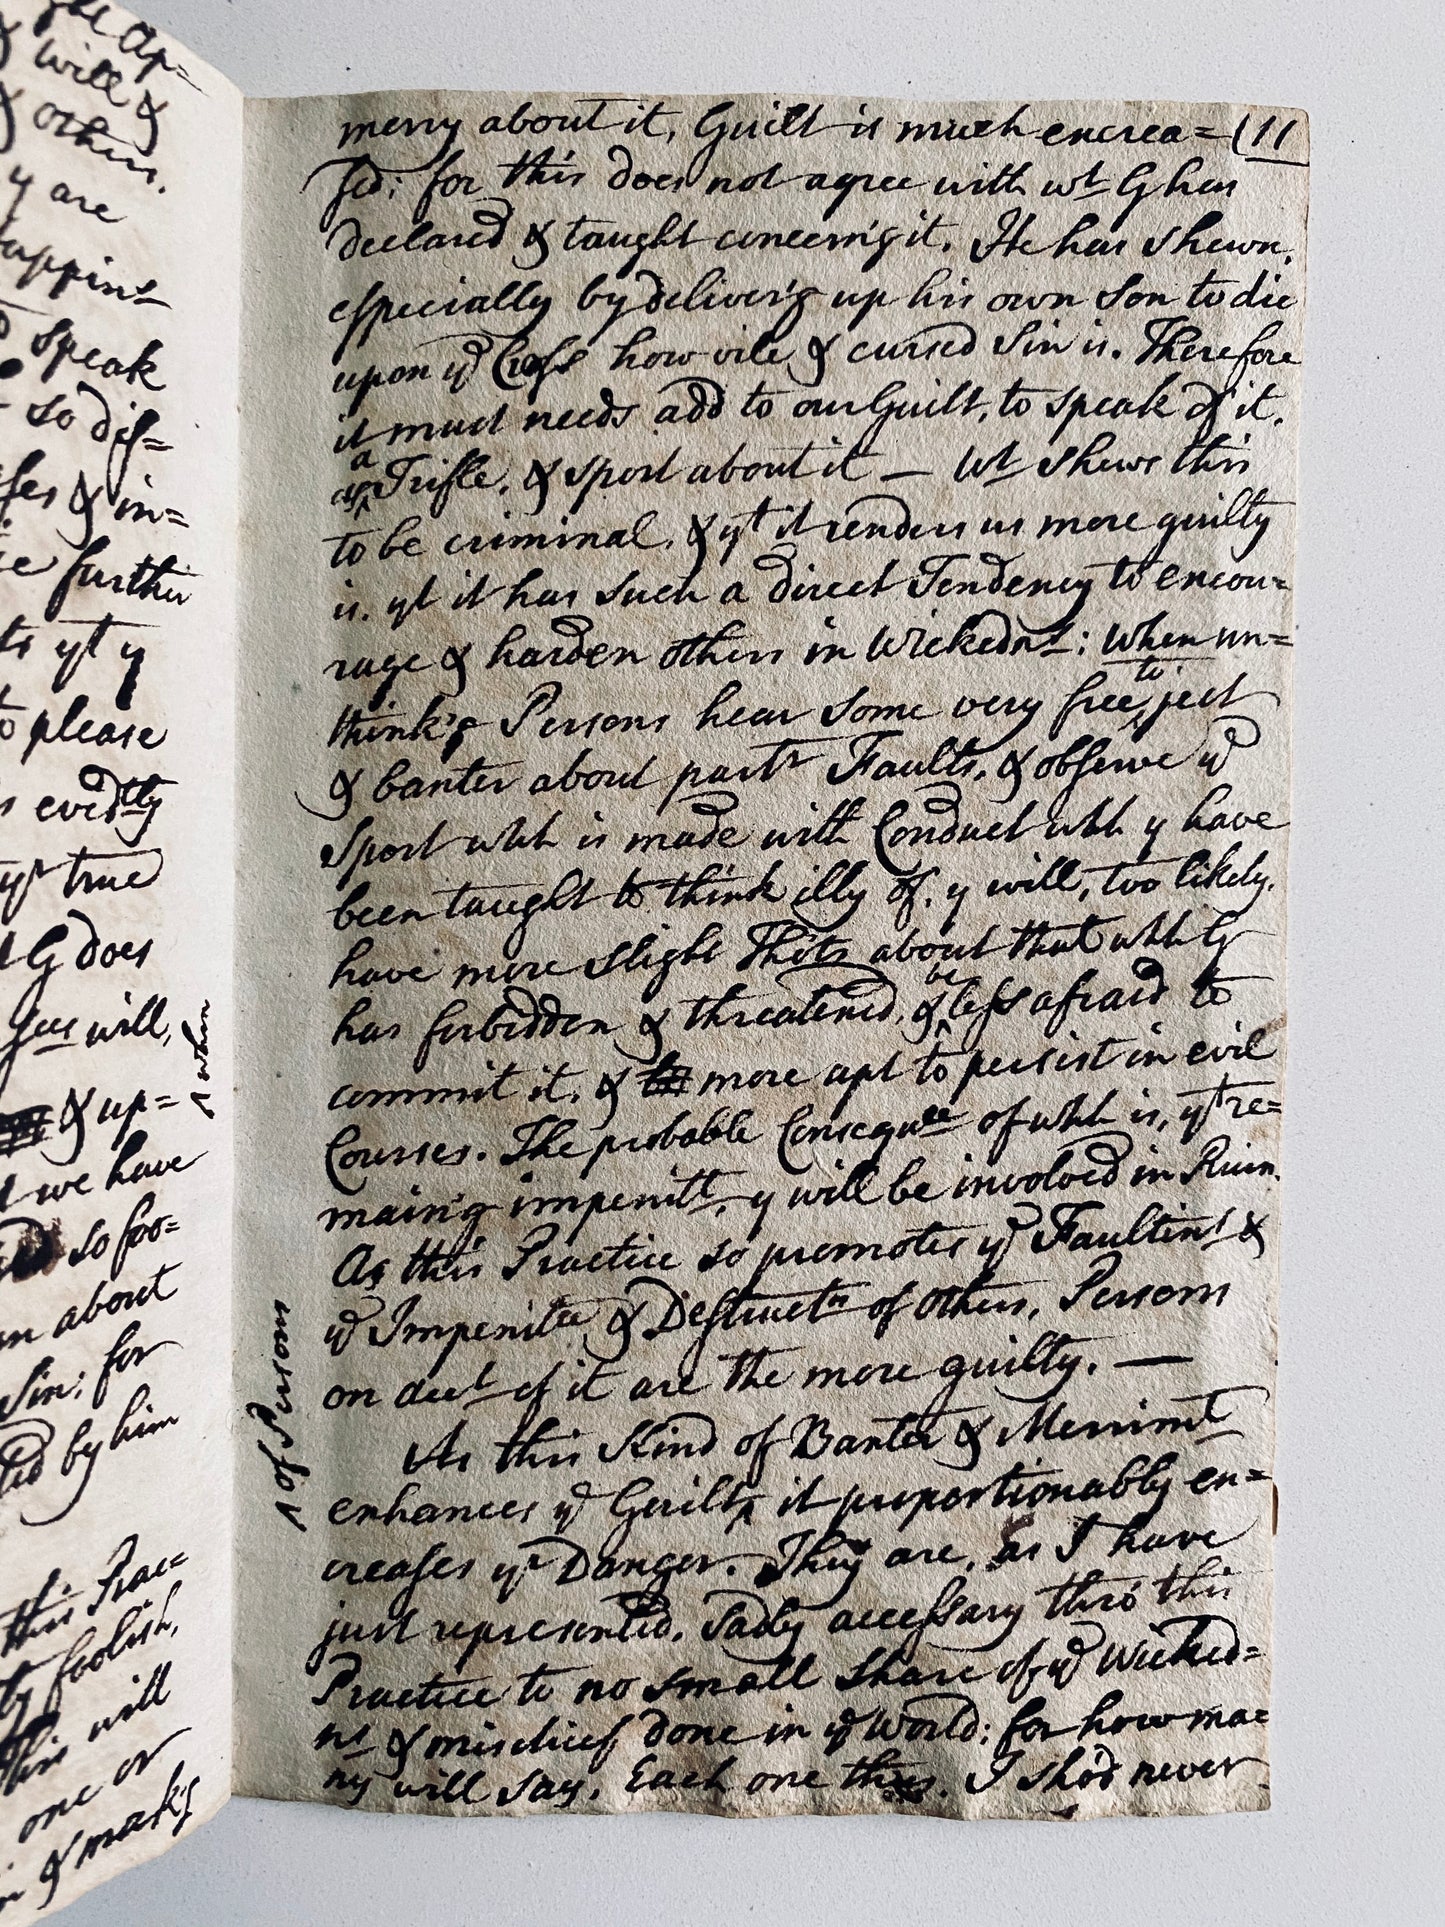 the Ap=
will &
& others.
y are
happins
speak
so dif=
ses & in=
further
ts yt y
to please
s evidtly
yr true
G does
will,
^ when
& up=
we have
so foo=
about
Sin: for
by him
this Prac=
foolish,
this will
one or
& makg
(11
merry about it, Guilt is much encrea=
sed; for this does not agree with wt G has
declared & taught concern'g it. He has shewn,
especially by deliver'g up his own Son to die
upon ye Cross how vile & cursed Sin is. Therefore
it must needs add to our Guilt, to speak of it,
as ^a Trifle, & sport about it — Wt shews this
to be criminal, & yt it renders us more guilty
is, yt it has such a direct Tendency to encou=
rage & harden others in Wickedns: When un=
think'g Persons hear some very free ^to jest
& banter about partr Faults, & observe ye
Sport whh is made with Conduct whh y have
been taught to think illy of, y will, too likely,
have more slight Tho'ts about that whh G
has forbidden & threatened, & ^be less afraid to
commit it, & more apt to persist in evil
Courses. The probable Consequee of whh is, yt re=
main'g impenitt, y will be involved in Ruin.
As this Practice so promotes ye Faultins &
ye Impenitce & Destructn of others, Persons
on acct of it are the more guilty. —
As this Kind of Banter & Merrimt
enhances ye Guilt ^ it proportionably en=
^ of Persons
creases yr Danger. They are, as I have
just represented, sadly accessary thro' this
Practice to no small share of ye Wicked=
ns & mischief done in ye World: for how ma=
ny will say, Each one . I sho'd never